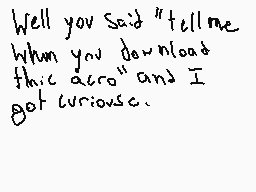 Well you said "tell me
when you download
this acro" and I
got curiouse.